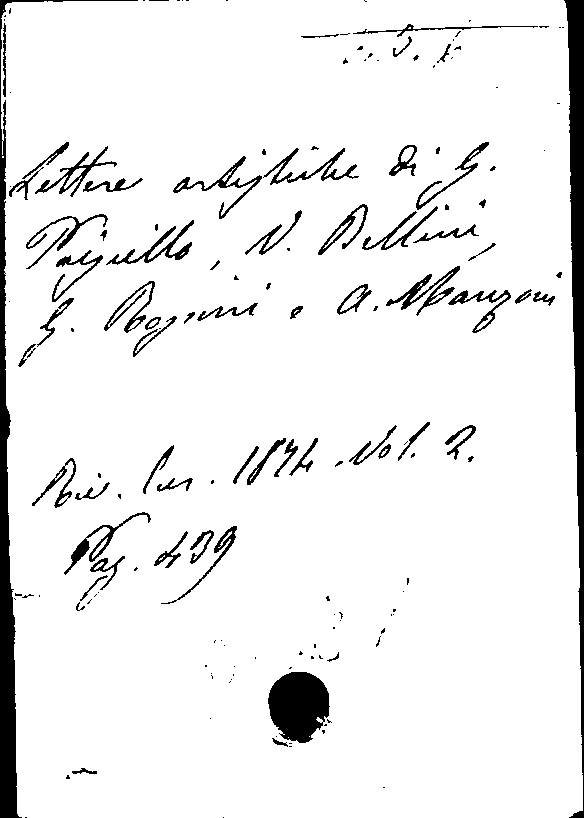 Lettere artistiche di G.
Paisiello, V. Bellini,
G. Rossini e A. Manzoni
Riv. Eur. 1874. Vol. 2.
Pag. 439